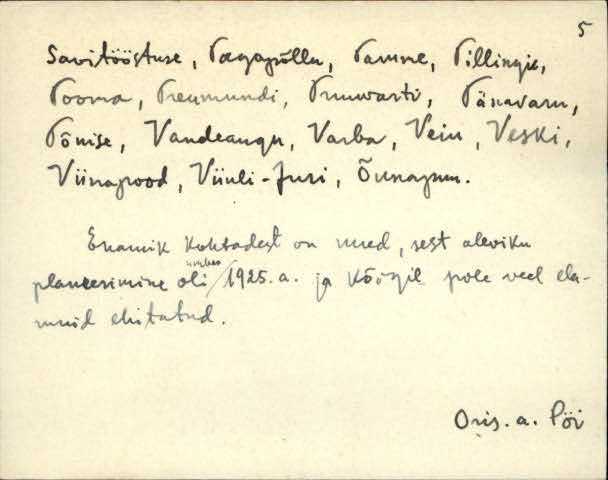 5
Savitööstuse, Tagapõllu, Tamme, Pillingu,
Tooma, Treumundi, Truuvarti, Tänavaru,
Tõnise, Vandeaugu, Varba, Veiu, Veski,
Viinapood, Viiuli-Juri, Õunapuu.
Enamik kohtadest on uued, sest aleviku
planeerimine oli umbes 1925. a. ja kõõgil pole veel ela-
muid ehitatud.
Oris. a. Pöi